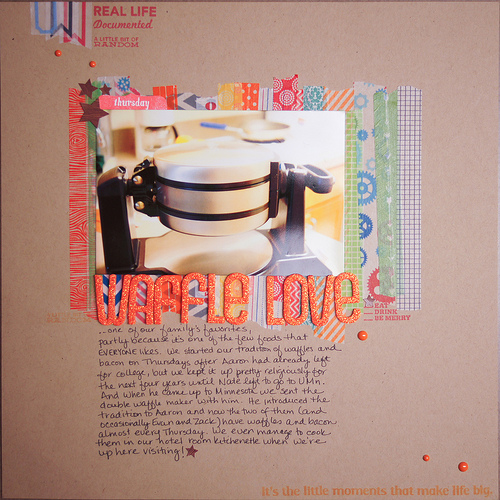 REAL LIFE
Documented
A LITTLE BIT OF
RANDOM
thursday
WAFFLE LOVE
EAT
DRINK
BE MERRY
...one of our family's favorites,
partly because it's one of the few foods that
EVERYONE likes. We started our tradition of waffles and
bacon on Thursdays after Aaron had already left
for college, but we kept it up pretty religiously for
the next four years until Nate left to go to UMn.
And when he came up to Minnesota we sent the
double waffle maker with him. He introduced the
tradition to Aaron and now the two of them (and
occasionally Evan and Zack) have waffles and bacon
almost every Thursday. We even manage to cook
them in our hotel room kitchenette when we're
up here visiting!
it's the little moments that make life big.